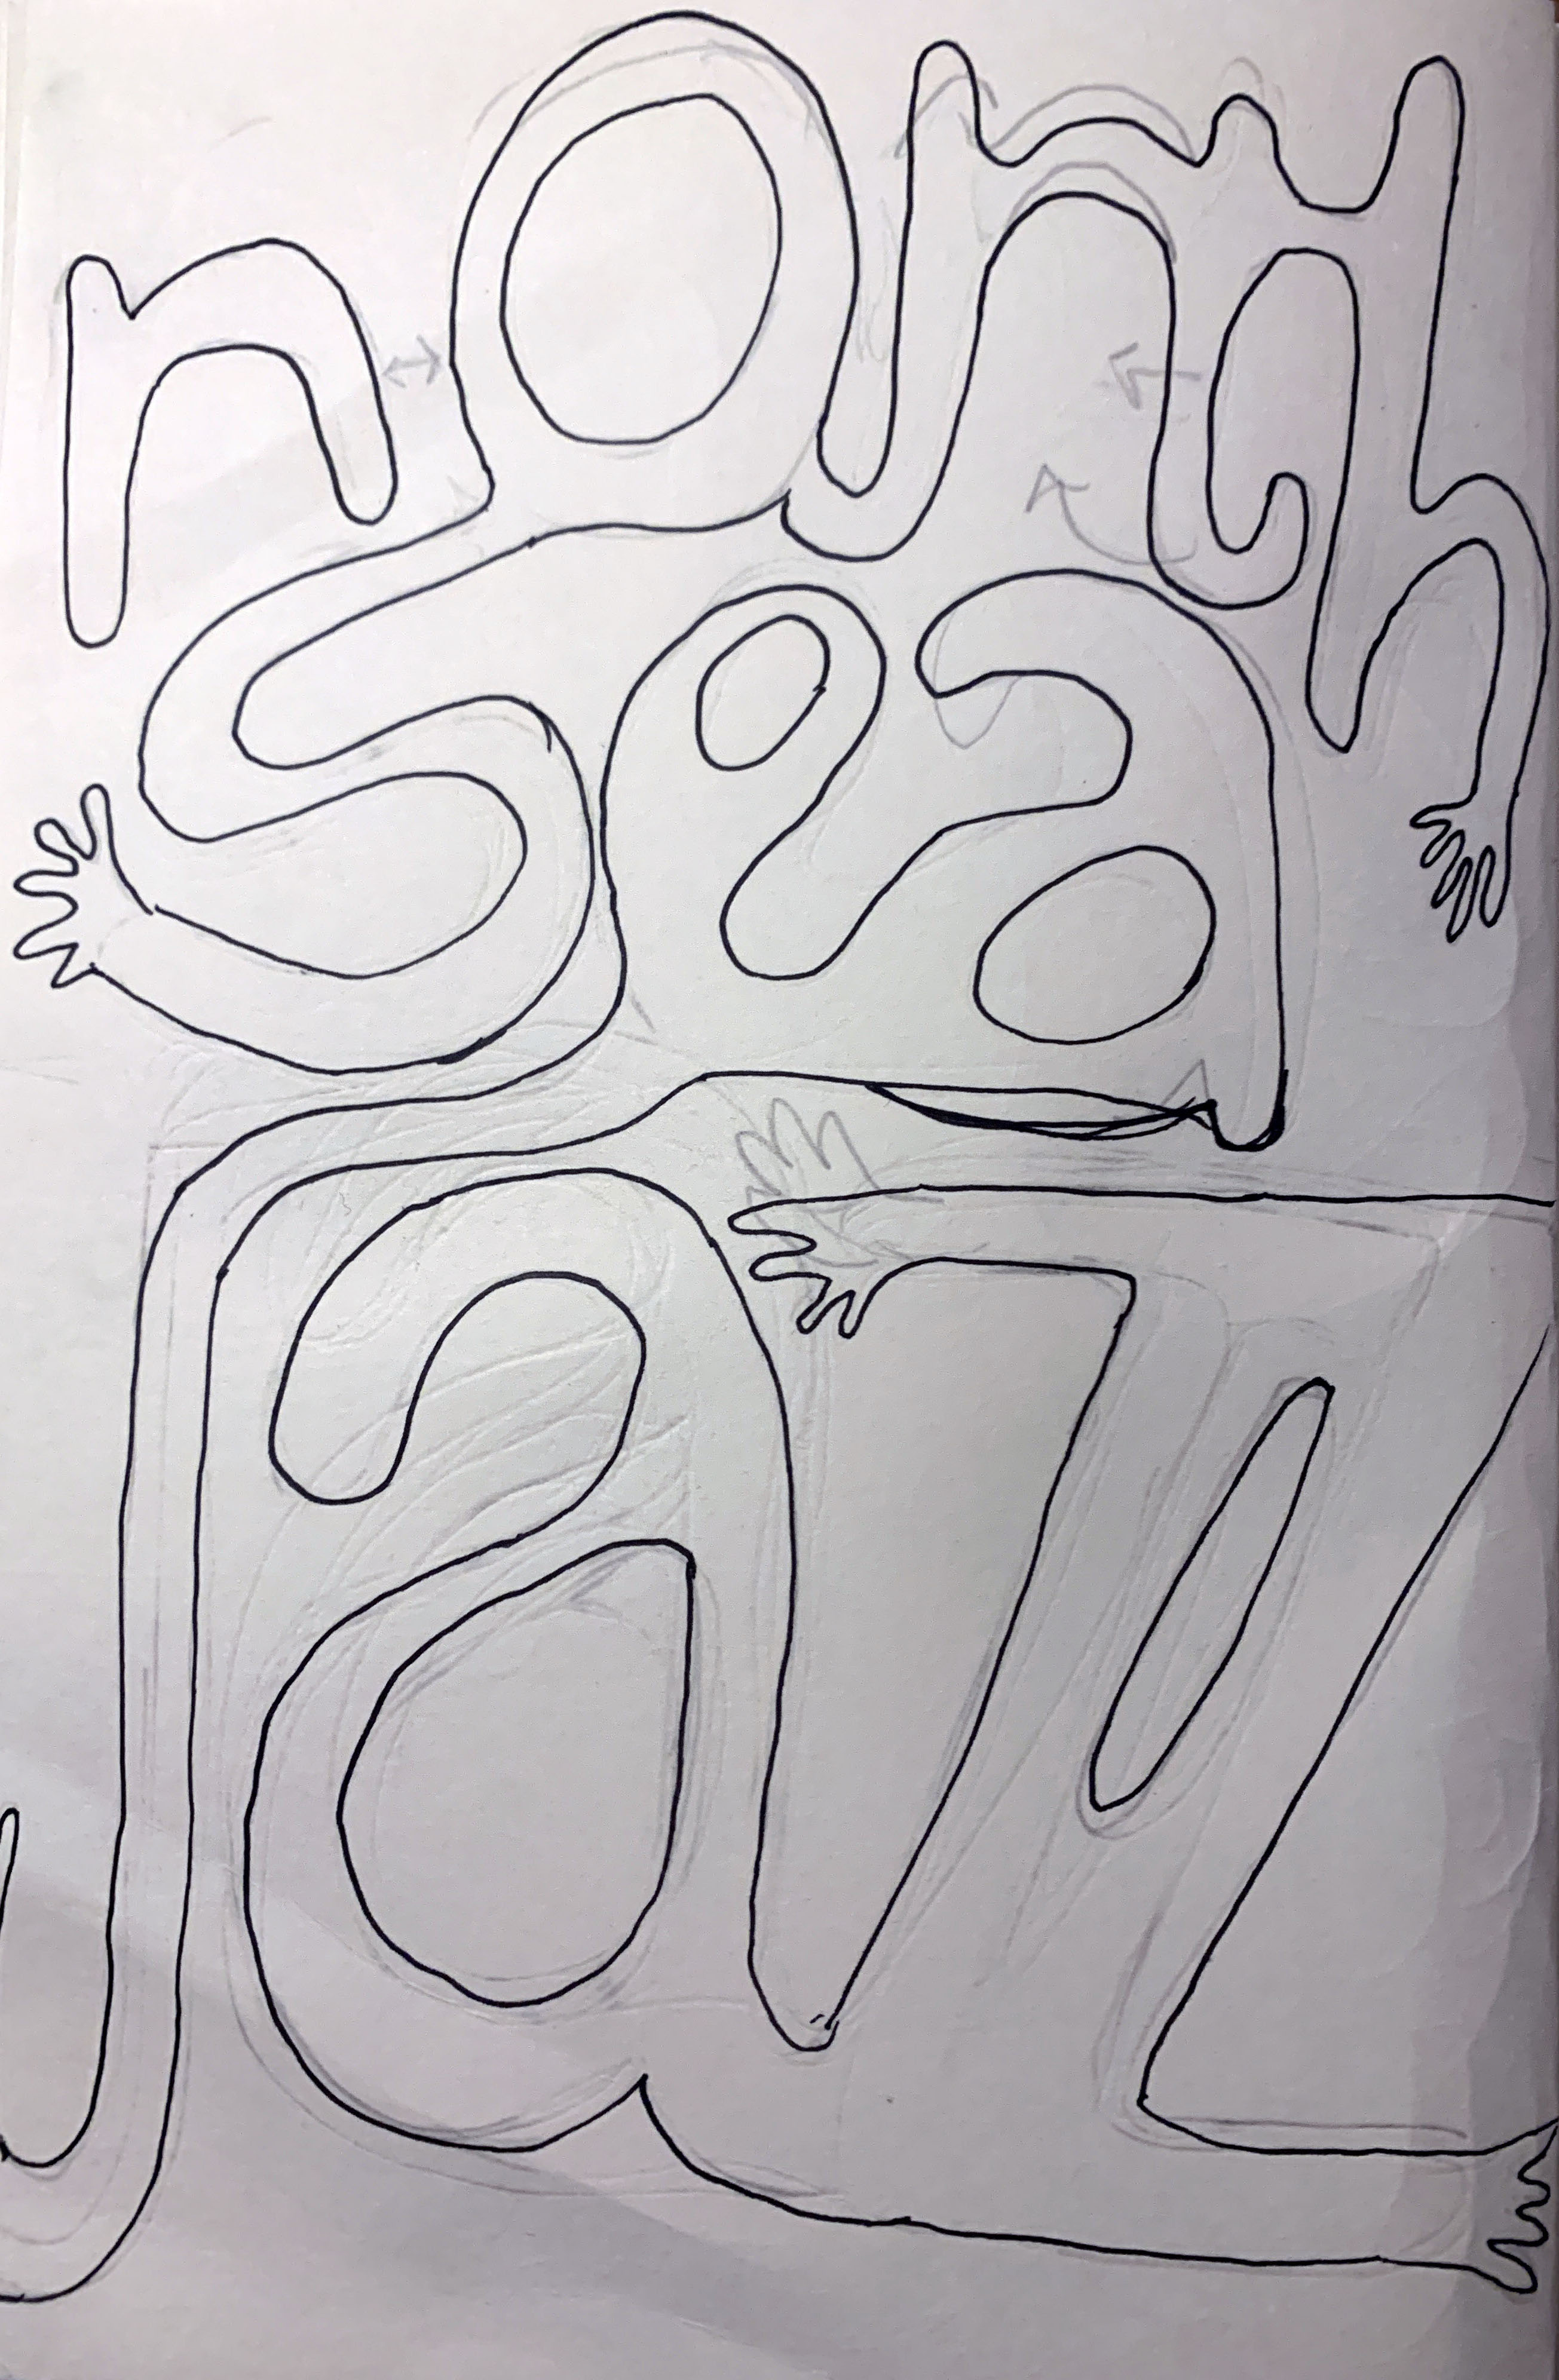 north
sea
jazz